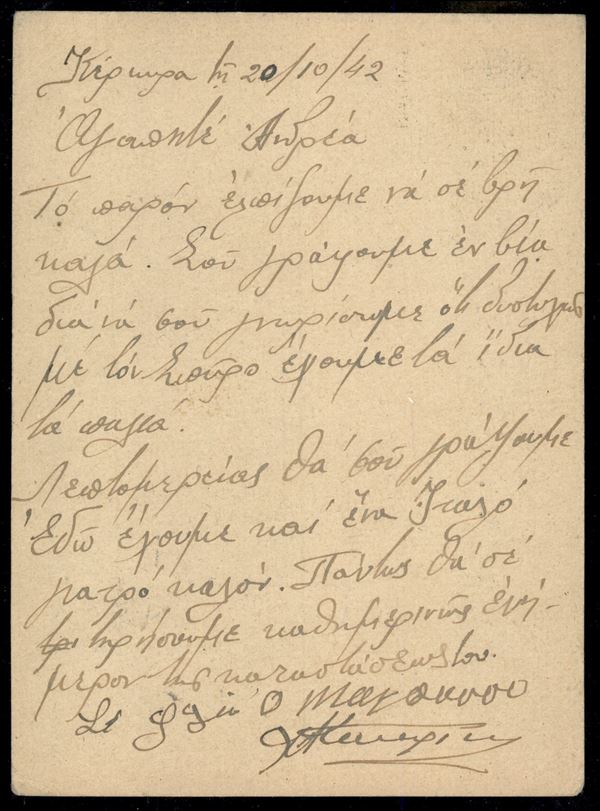 Κέρκυρα τῇ 20/10/42
Ἀγαπητέ Ἀνδρέα
Τό παρόν ἐλπίζουμε νά σέ βρῇ
καλά. Σοῦ γράφουμε ἐν βίᾳ
διά νά σοῦ γνωρίσουμε ὅτι δυστυχῶς
μέ τόν Σπῦρο ἔχουμε τά ἴδια
τά παλιά.
Λεπτομερείας θά σοῦ γράψουμε
Ἐδῶ ἔχουμε καί ἕνα Ἰταλό
γιατρό καλόν. Πάντως θά σέ
τηρήσουμε καθημερινῶς ἐνή-
μερον τῆς καταστάσεώς του.
Σέ φιλῶ Ὁ